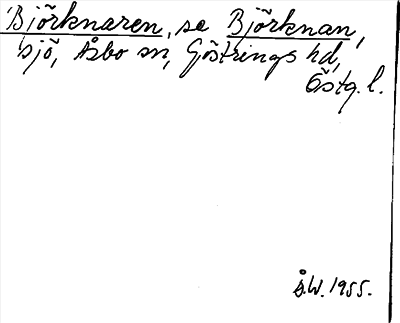 Björknaren, se Björknan,
sjö, Åsbo sn, Göstrings hd,
Östg. l.
Å.W. 1955.